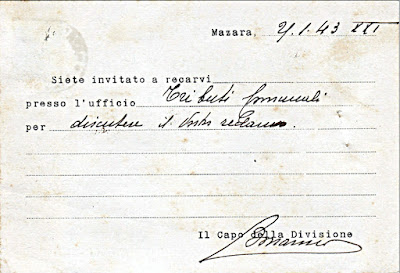 Mazara, 2/1.43 XXI
Siete invitato a recarvi
presso l'ufficio Tributi Comunali
per discutere il Vostro reclamo.
Il Capo della Divisione